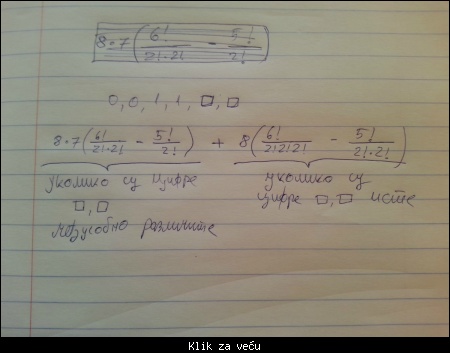 8·7(6!/2!·2! - 5!/2!)
0, 0, 1, 1, □, □
8·7(6!/2!·2! - 5!/2!) + 8(6!/2!2!2! - 5!/2!·2!)
уколико су цифре
□, □
међусобно различите
уколико су
цифре □, □ исте
Klik za veću